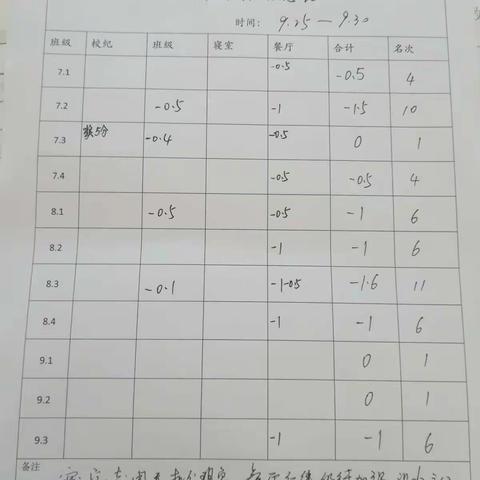 时间： 9.25 — 9.30
班级 校纪 班级 寝室 餐厅 合计 名次
7.1 -0.5 -0.5 4
7.2 -0.5 -1 -1.5 10
7.3 扶5分 -0.4 -0.5 0 1
7.4 -0.5 -0.5 4
8.1 -0.5 -0.5 -1 6
8.2 -1 -1 6
8.3 -0.1 -1-0.5 -1.6 11
8.4 -1 -1 6
9.1 0 1
9.2 0 1
9.3 -1 -1 6
备注